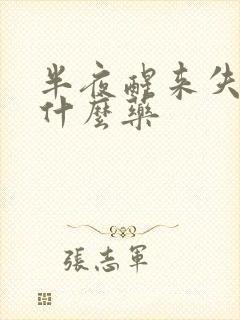 半夜醒来失
什麼藥
張志軍